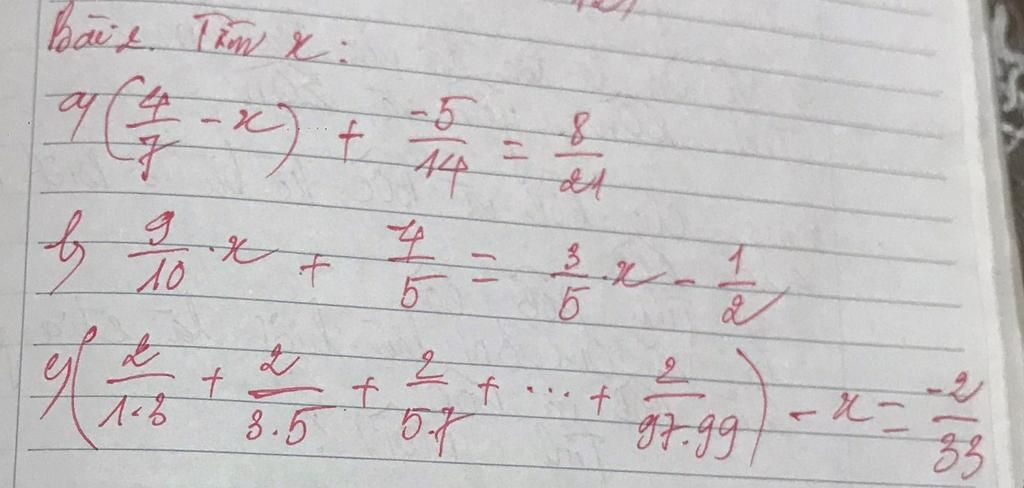 Bài 2. Tìm x:
a) (4/7 - x) + -5/14 = 8/21
b) 9/10 . x + 7/5 = 3/5 . x - 1/2
c) (2/1.3 + 2/3.5 + 2/5.7 + ... + 2/97.99) - x = -2/33